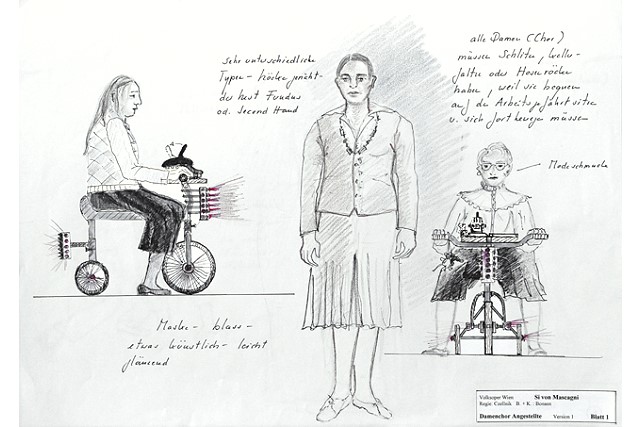 sehr unterschiedliche
Typen -
der Rest Fundus
od. Second Hand
alle Damen (Chor)
müssen Schlitze, weite
Falten oder Hosenröcke
haben, weil sie bequem
auf den Arbeitsgefährt sitzen
u. sich fort bewegen müssen
Modeschmuck
Maske - blass -
etwas künstlich - leicht
glänzend
Volksoper Wien Si von Mascagni
Regie:
Damenchor Angestellte Version 1 Blatt 1